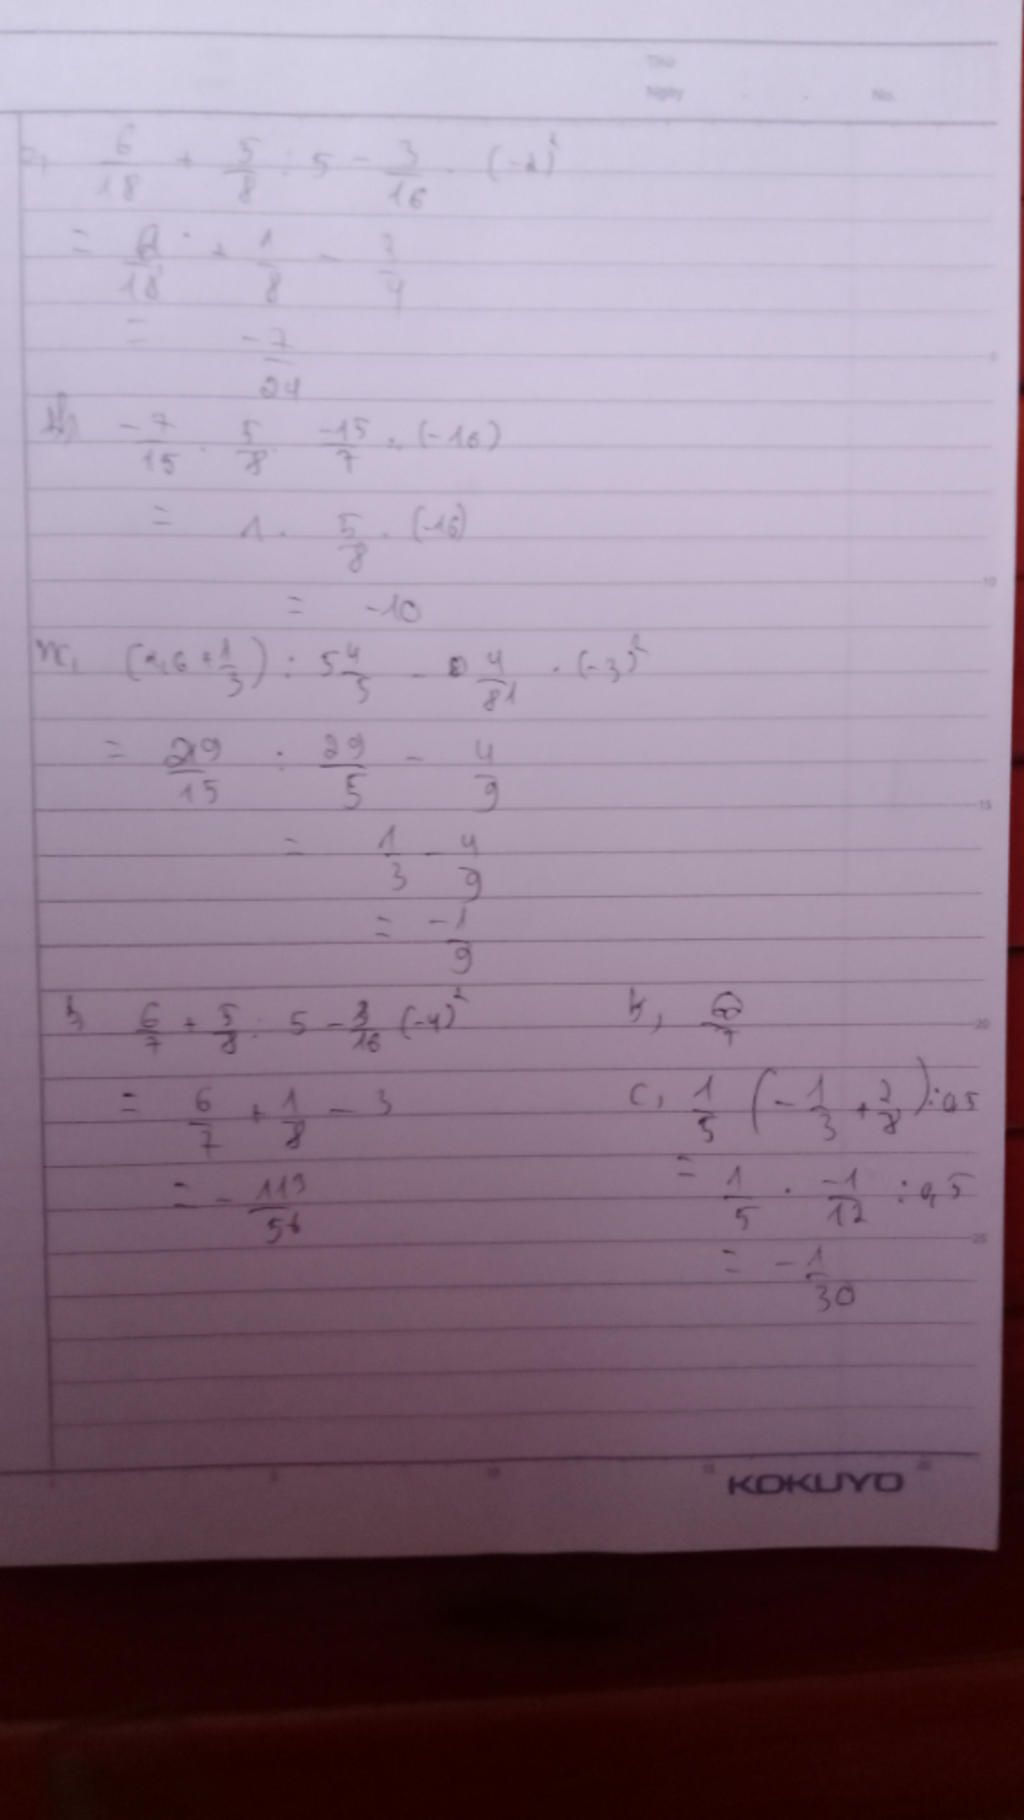 Thứ
Ngày . . No.
6/18 + 5/8 : 5 - 3/16 . (-2)²
= 6/18 + 1/8 - 3/4
= -7/24
-7/15 . 5/8 . -15/7 . (-16)
= 1 . 5/8 . (-16)
= -10
m, (1,6 + 1/3) : 5 4/5 - 4/81 . (-3)²
= 29/15 : 29/5 - 4/9
= 1/3 - 4/9
= -1/9
6/7 + 5/8 : 5 - 3/16 (-4)²
= 6/7 + 1/8 - 3
= - 119/56
b, 6/7
c, 1/5 (-1/3 + 2/8) : 0,5
= 1/5 . -1/12 : 0,5
= -1/30
5
10
15
20
25
5 10 15 20
KOKUYO